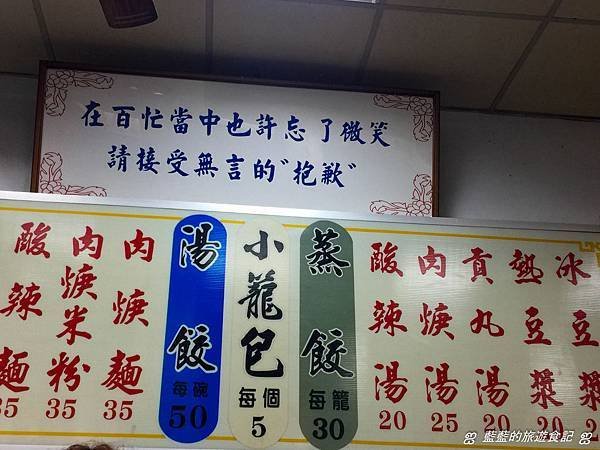 在百忙當中也許忘了微笑
請接受無言的"抱歉"
酸辣麵 35
肉焿米粉 35
肉焿麵 35
湯餃 每碗 50
小籠包 每個 5
蒸餃 每籠 30
酸辣湯 20
肉焿湯 25
貢丸湯 20
熱豆漿 20
冰豆漿
藍藍的旅遊食記